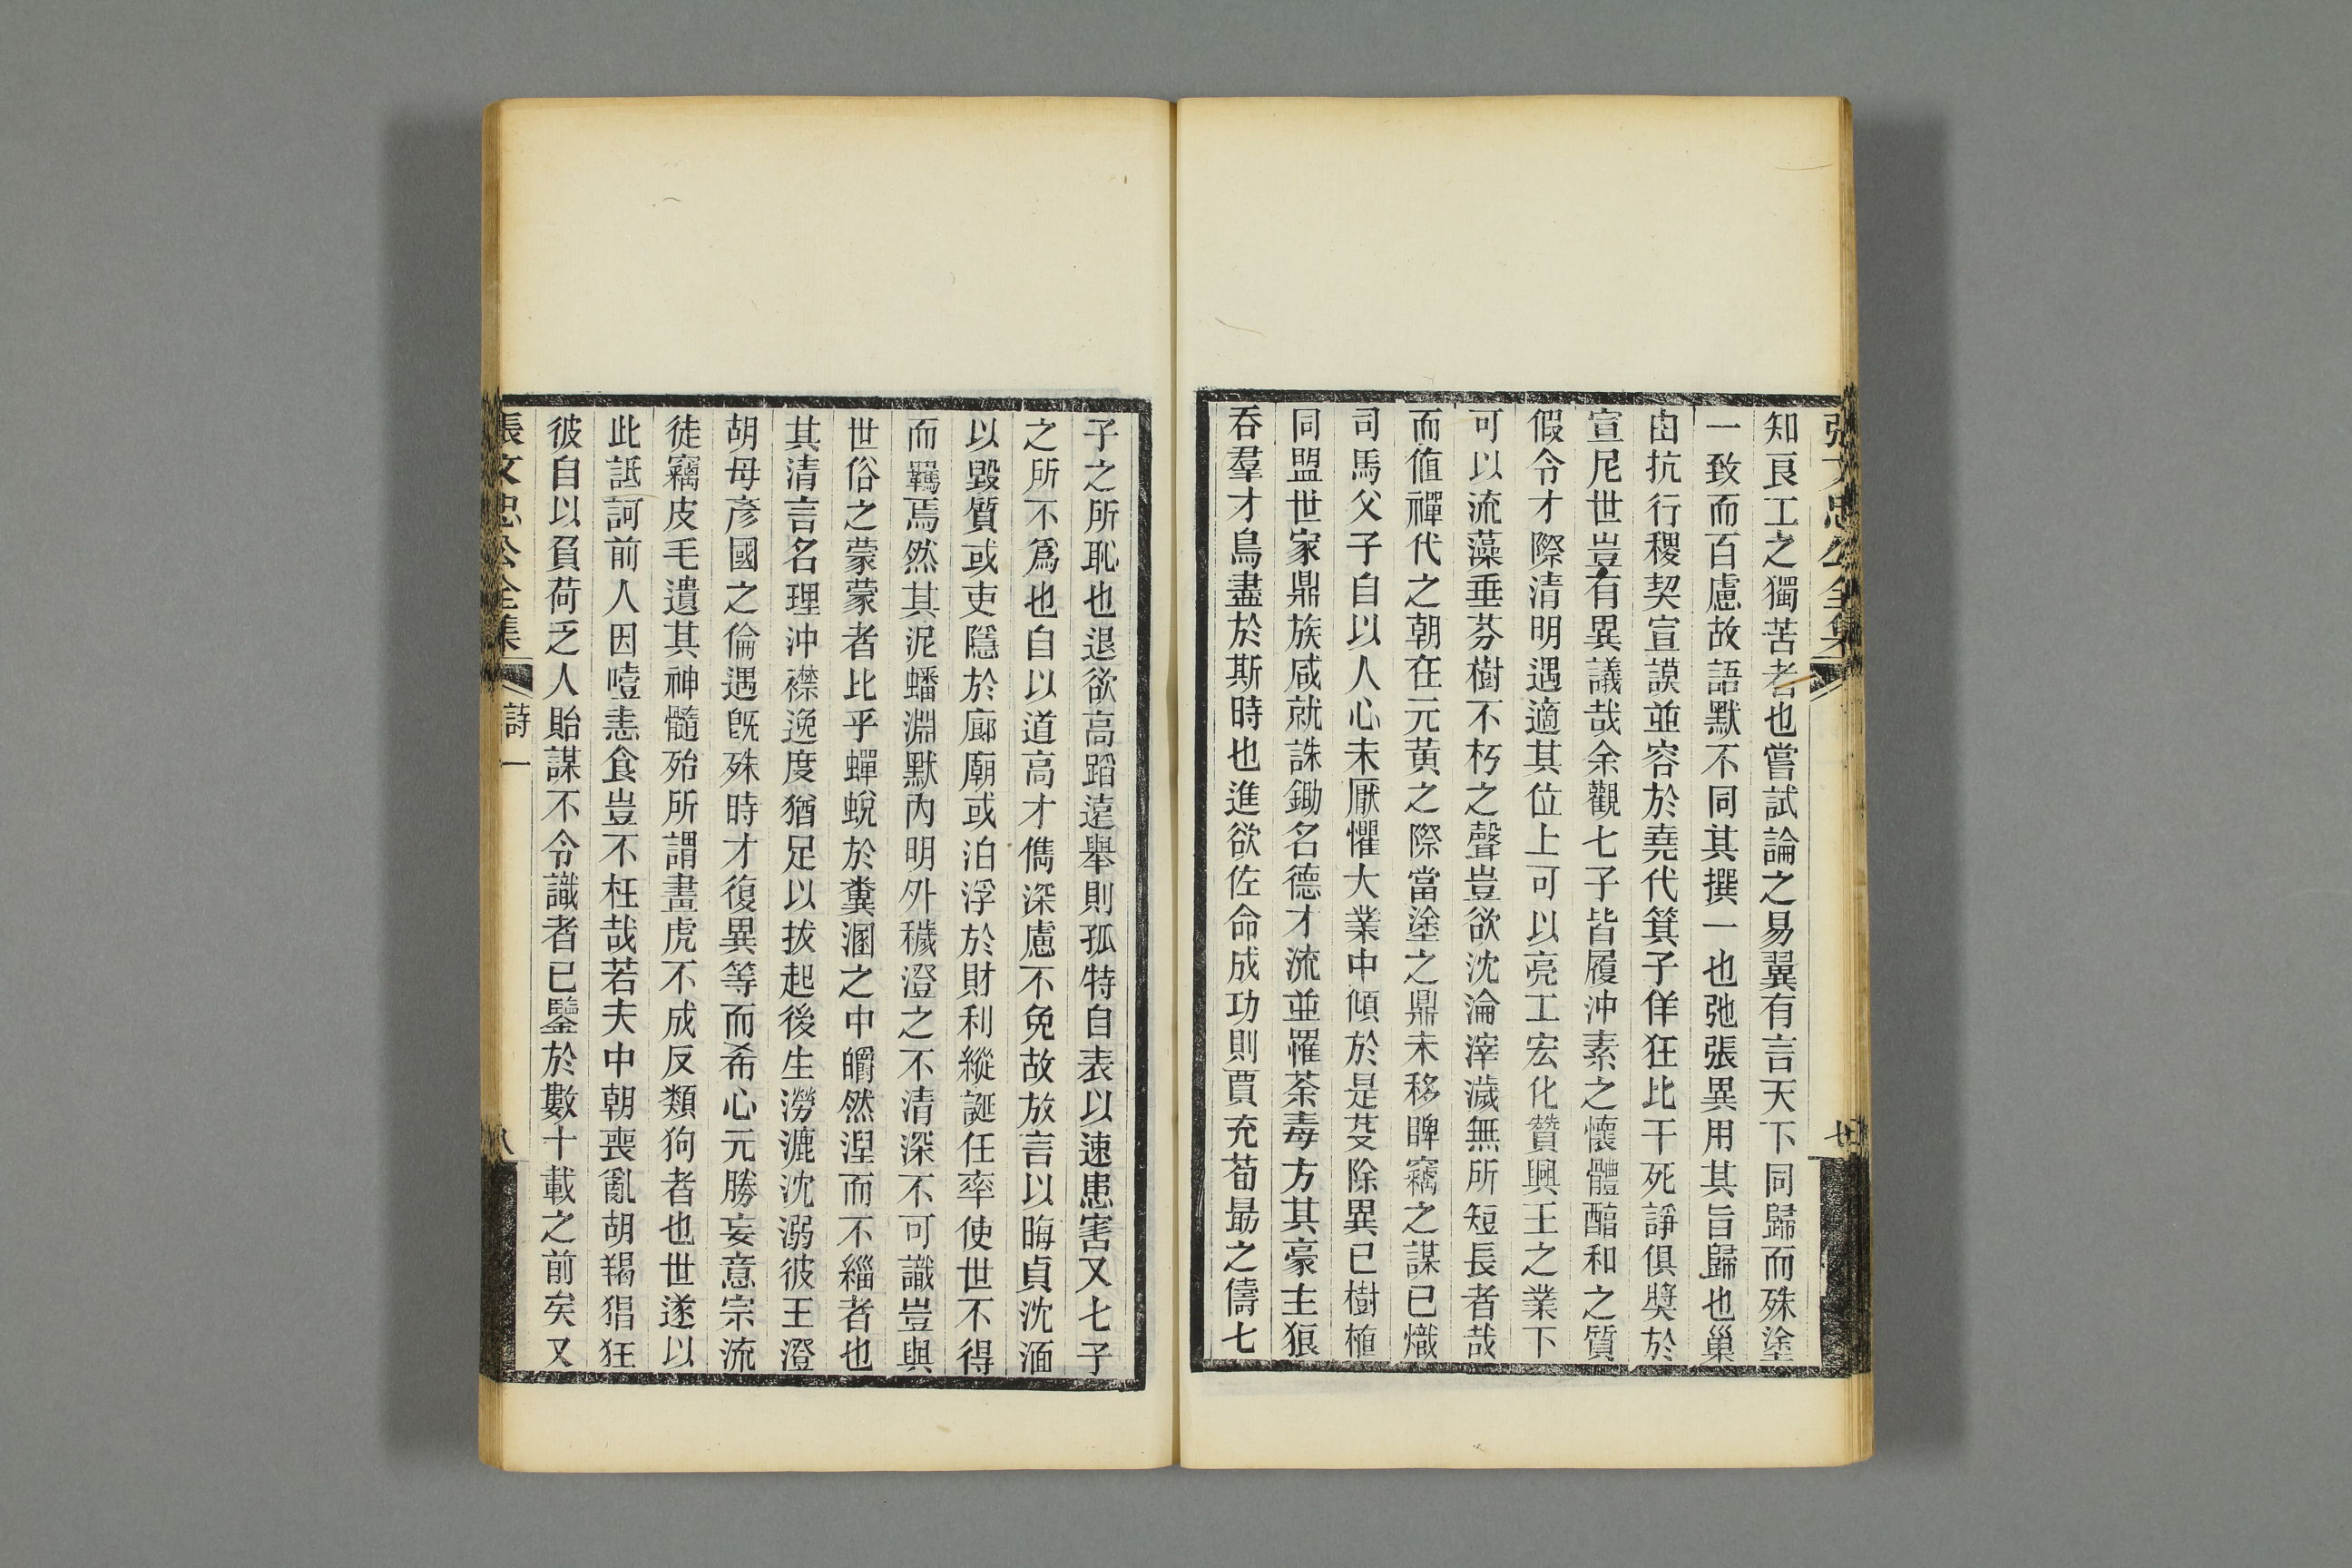 張文忠公全集
七
知良工之獨苦者也嘗試論之易翼有言天下同歸而殊塗
一致而百慮故語默不同其撰一也弛張異用其旨歸也巢
由抗行稷契宣謨並容於堯代箕子佯狂比干死諍俱奬於
宣尼世豈有異議哉余觀七子皆履沖素之懷體醕和之質
假令才際清明遇適其位上可以亮工宏化贊興王之業下
可以流藻垂芬樹不朽之聲豈欲沈淪滓濊無所短長者哉
而値禪代之朝在元黃之際當塗之鼎未移睥竊之謀已熾
司馬父子自以人心未厭懼大業中傾於是芟除異已樹植
同盟世家鼎族咸就誅鋤名德才流並罹荼毒方其豪主狼
吞羣才鳥盡於斯時也進欲佐命成功則賈充荀勗之儔七
子之所恥也退欲高蹈遠舉則孤特自表以速患害又七子
之所不爲也自以道高才儁深慮不免故放言以晦貞沈湎
以毀質或吏隱於廊廟或泊浮於財利縱誕任率使世不得
而羈焉然其泥蟠淵默內明外穢澄之不清深不可識豈與
世俗之蒙蒙者比乎蟬蛻於糞溷之中皭然涅而不緇者也
其清言名理沖襟逸度猶足以拔起後生澇漉沈溺彼王澄
胡母彥國之倫遇旣殊時才復異等而希心元勝妄意宗流
徒竊皮毛遺其神髓殆所謂畫虎不成反類狗者也世遂以
此詆訶前人因噎恚食豈不枉哉若夫中朝喪亂胡羯猖狂
彼自以負荷乏人貽謀不令識者已鑒於數十載之前矣又
張文忠公全集
詩一
八